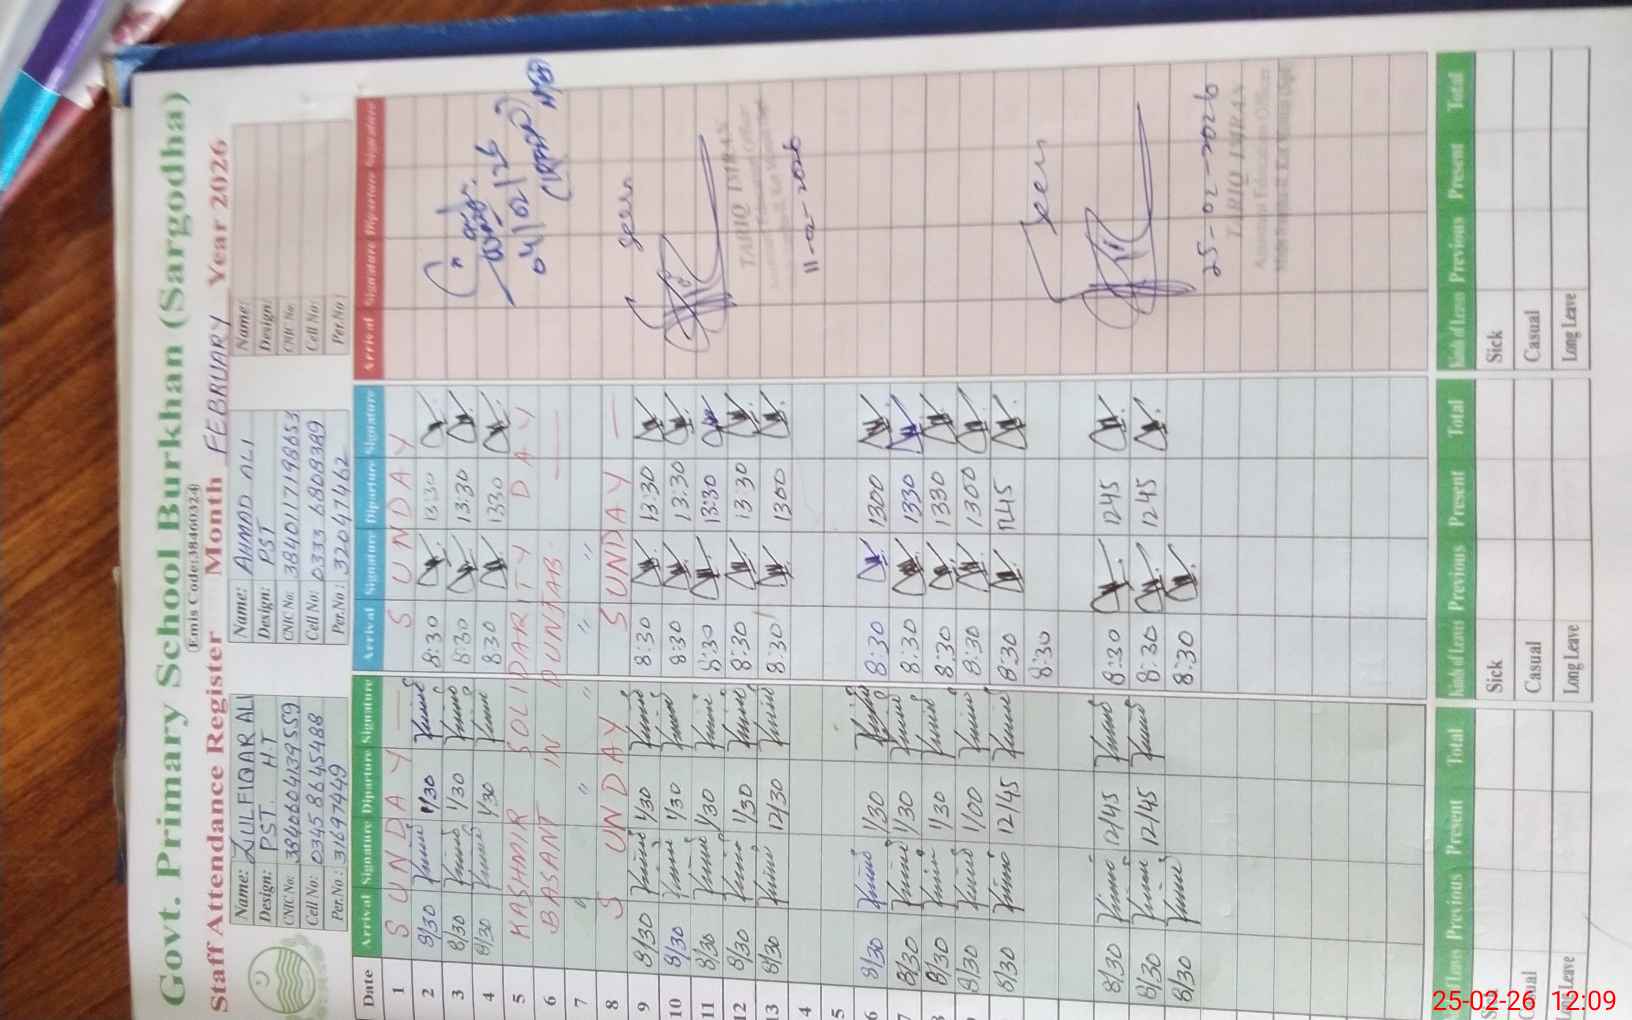 Govt. Primary School Burkhan (Sargodha)
Emis Code:38460324
Staff Attendance Register Month FEBRUARY Year 2026
Name: ZULFIQAR ALI
Design: PST. H.T
CNIC No: 3840604139559
Cell No: 0345 8645488
Per.No.: 31697449
Name: AHMAD ALI
Design: PST
CNIC No: 3840117198653
Cell No: 0333 6808389
Per.No.: 32047462
Name:
Design:
CNIC No:
Cell No:
Per.No:
Date Arrival Signature Diparture Signature Arrival Signature Diparture Signature Arrival Signature Diparture Signature
1 SUNDAY SUNDAY
2 8/30 1/30 8:30 13:30
3 8/30 1/30 8:30 13:30
4 8/30 1/30 8:30 1330
5 KASHMIR SOLIDARITY DAY
6 BASANT IN PUNJAB
7 " " " " "
8 SUNDAY SUNDAY
9 8/30 1/30 8:30 13:30
10 8/30 1/30 8:30 13:30
11 8/30 1/30 8:30 13:30
12 8/30 1/30 8:30 13:30
13 8/30 12/30 8:30 1300
4
5
6 8/30 1/30 8:30 1300
7 8/30 1/30 8:30 1330
8/30 1/30 8:30 1330
8/30 1/00 8:30 1300
8/30 12/45 8:30 1245
8:30
8/30 12/45 8:30 1245
8/30 12/45 8:30 1245
8/30 8:30
04/02/26
seen
TARIQ IMRAN
11-02-2026
seen
25-02-2026
TARIQ IMRAN
Kind of Leaves Previous Present Total
Sick
Casual
Long Leave
Kind of Leaves Previous Present Total
Sick
Casual
Long Leave
Kind of Leaves Previous Present Total
Sick
Casual
Long Leave
25-02-26 12:09